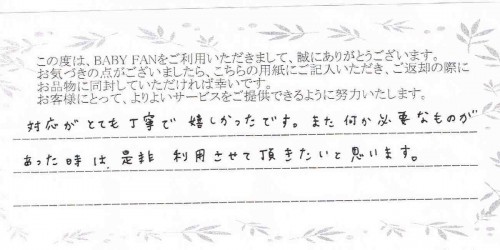 この度は、BABY FANをご利用いただきまして、誠にありがとうございます。
お気づきの点がございましたら、こちらの用紙にご記入いただき、ご返却の際に
お品物に同封していただければ幸いです。
お客様にとって、よりよいサービスをご提供できるように努力いたします。
対応がとても丁寧で嬉しかったです。また何か必要なものが
あった時は、是非 利用させて頂きたいと思います。